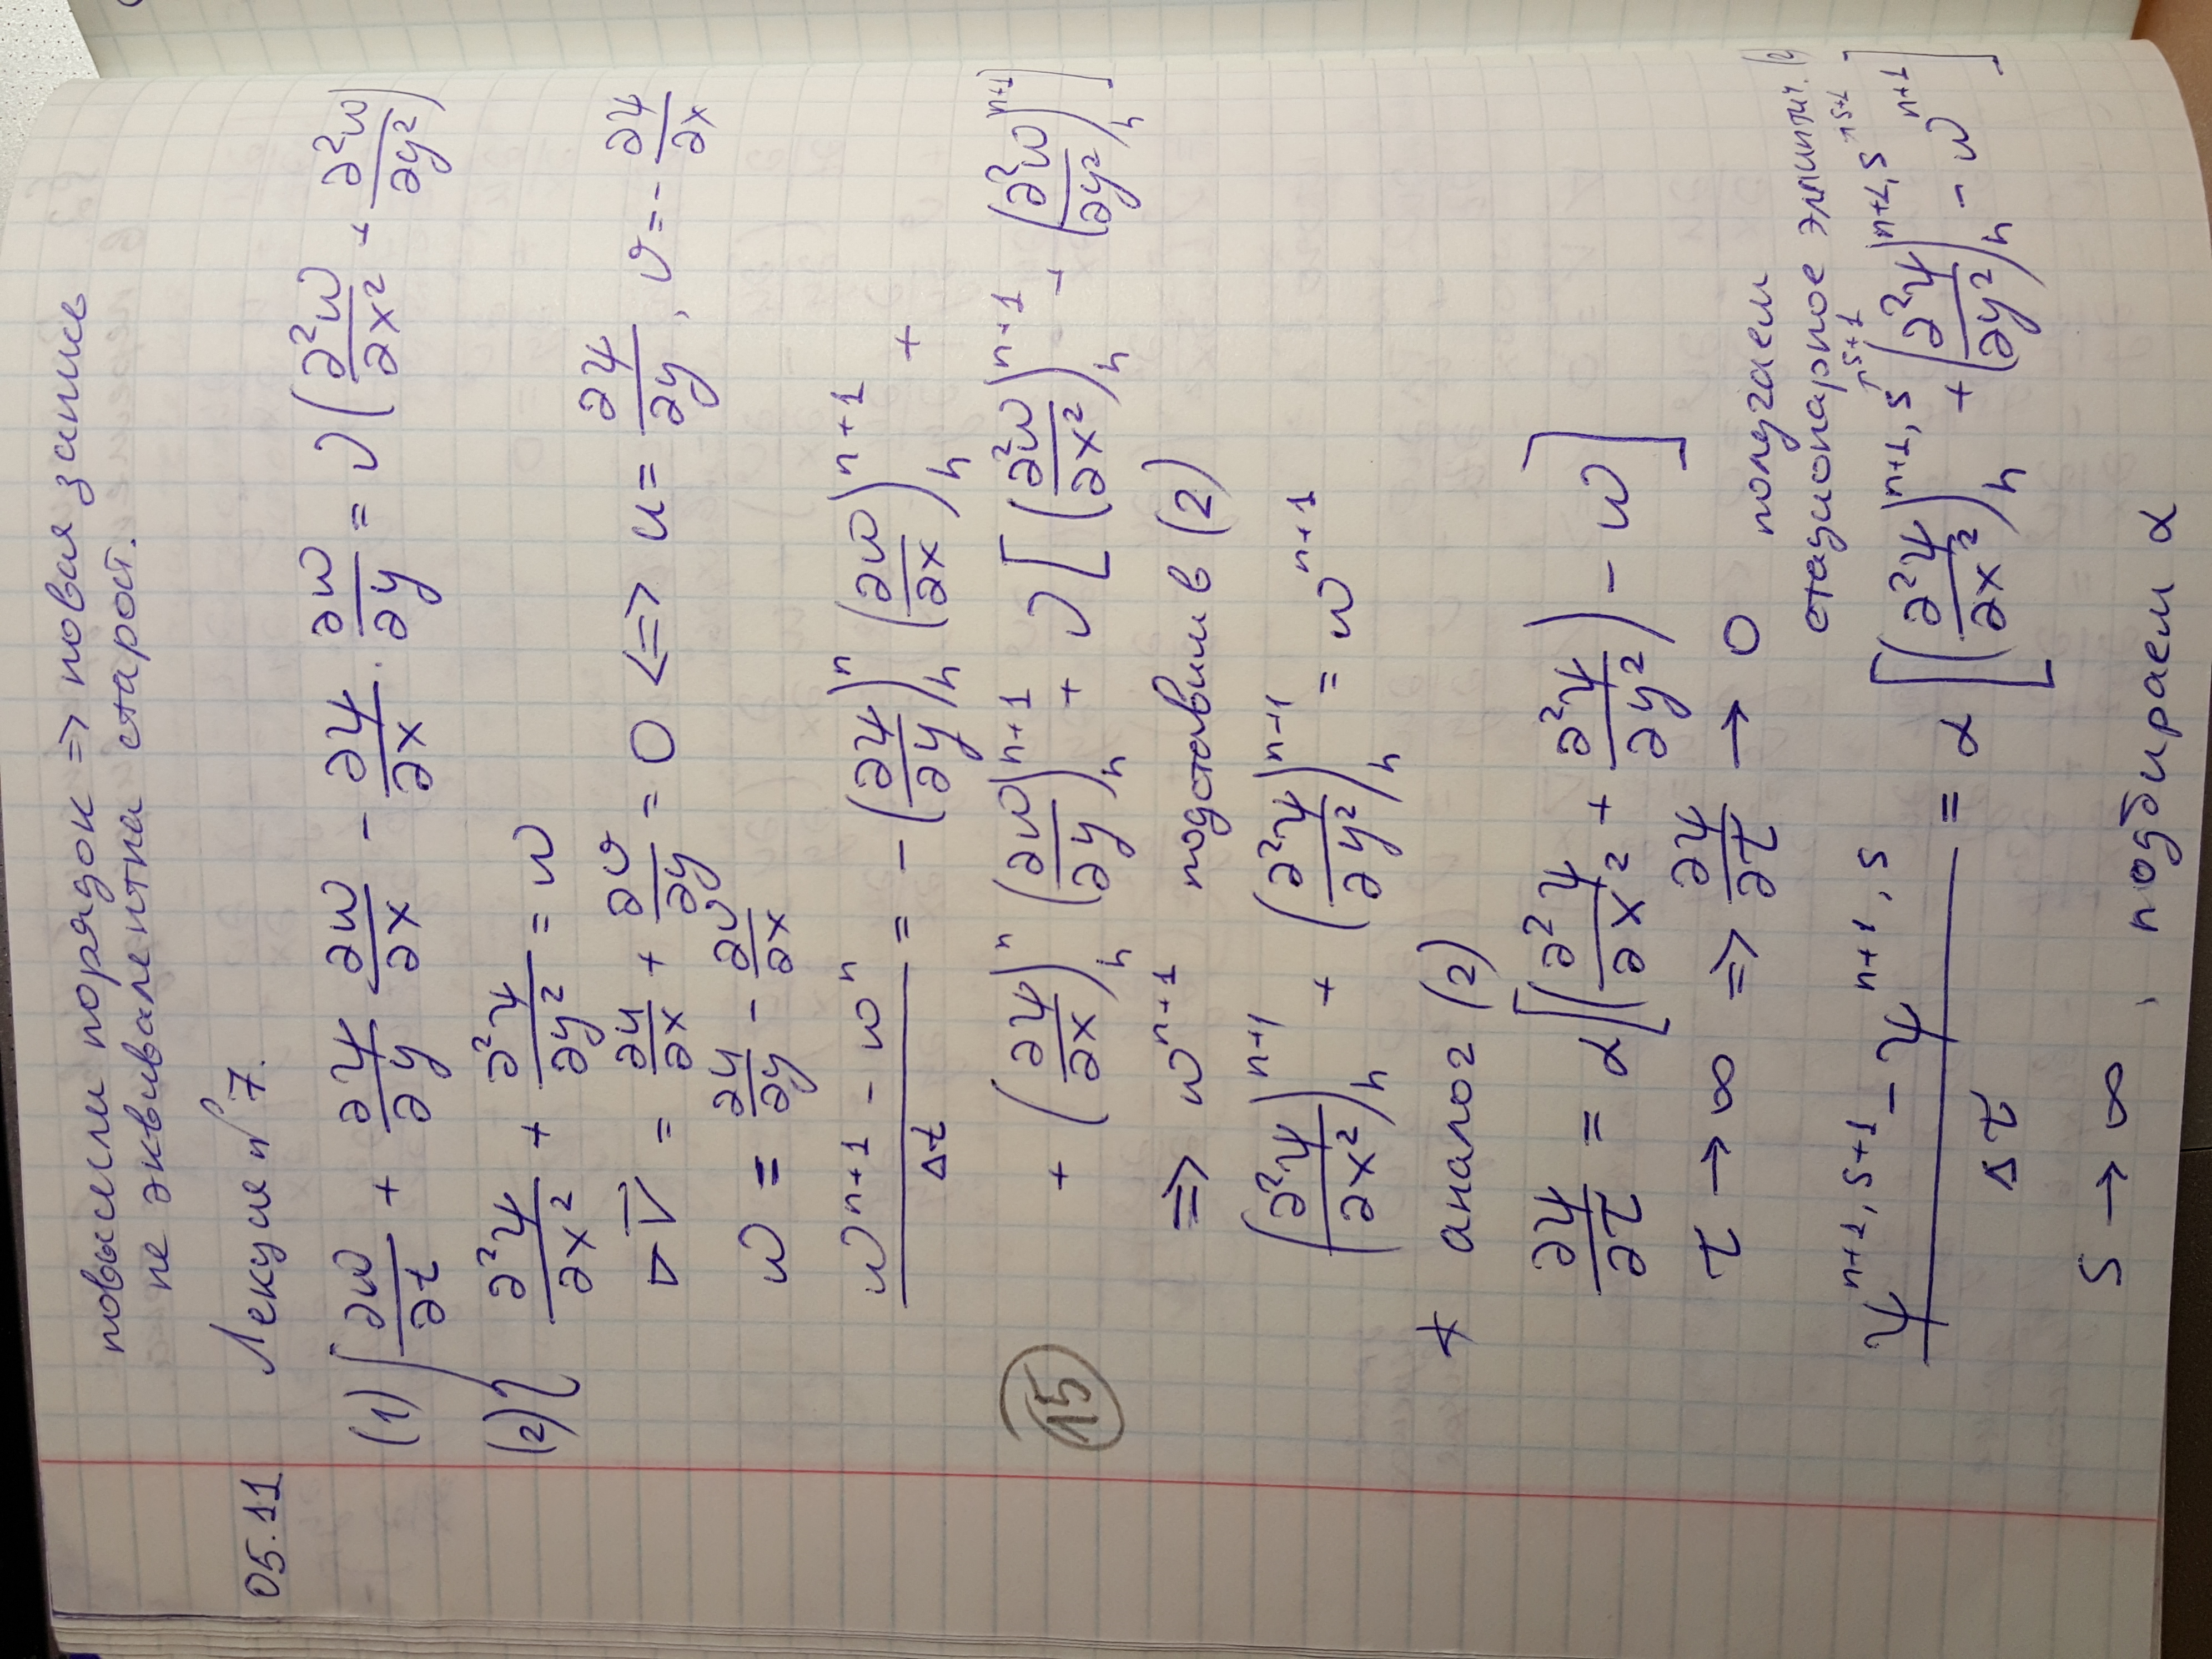 повысили порядок => новая запись
не эквивалентна старой.
05.11 Лекция № 7.
(1) { ∂ω/∂t + ∂ψ/∂y ∂ω/∂x - ∂ψ/∂x · ∂ω/∂y = ν (∂²ω/∂x² + ∂²ω/∂y²)
(2) { ∂²ψ/∂x² + ∂²ψ/∂y² = ω
∇V⃗ = ∂u/∂x + ∂v/∂y = 0 <=> u = ∂ψ/∂y, v = - ∂ψ/∂x
ω = ∂u/∂y - ∂v/∂x
(ω^{n+1} - ω^n)/Δt = - (∂ψ/∂y)_h^n (∂ω/∂x)_h^{n+1} +
15 + (∂ψ/∂x)_h^n (∂ω/∂y)_h^{n+1} + ν [(∂²ω/∂x²)_h^{n+1} + (∂²ω/∂y²)_h^{n+1}]
=> ω^{n+1} подставим в (2)
(∂²ψ/∂x²)_h^{n+1} + (∂²ψ/∂y²)_h^{n+1} = ω^{n+1}
* аналог (2)
∂ψ/∂τ = α [(∂²ψ/∂x² + ∂²ψ/∂y²) - ω]
τ → ∞ => ∂ψ/∂τ → 0 получаем
стационарное эллиптич. (2)
(ψ^{n+1, s+1} - ψ^{n+1, s})/Δτ = α [(∂²ψ/∂x²)_h^{n+1, s ↗ s+1} + (∂²ψ/∂y²)_h^{n+1, s ↗ s+1} - ω^{n+1}]
s → ∞, подбираем α